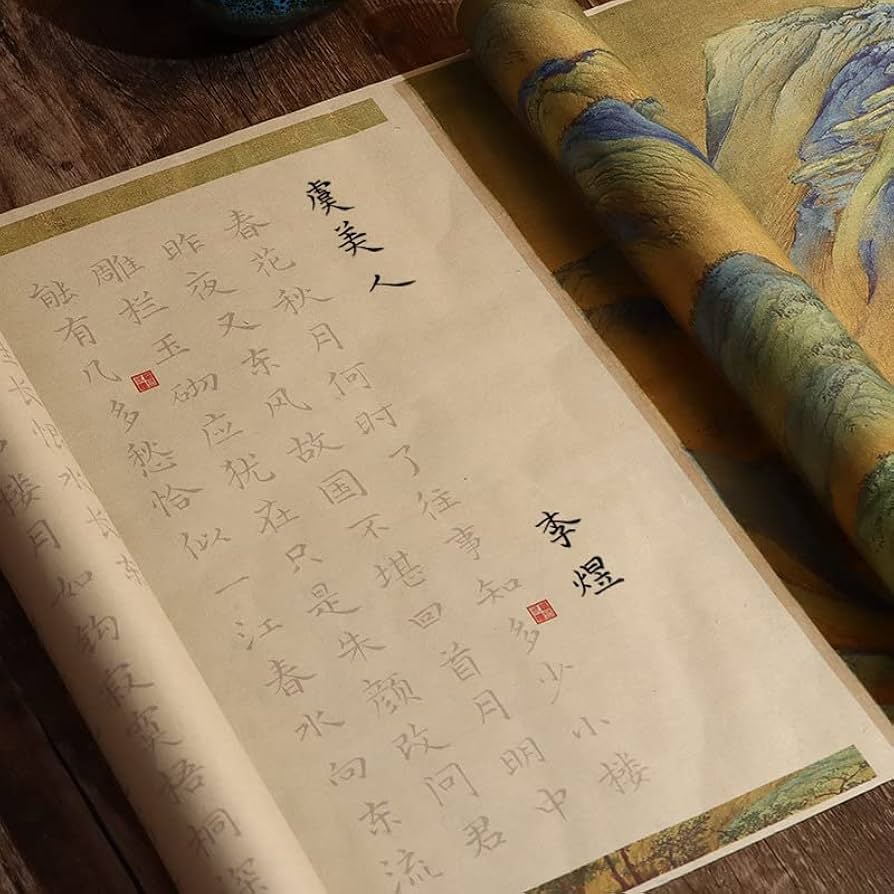 虞美人
李煜
春花秋月何时了往事知多少小楼
昨夜又东风故国不堪回首月明中
雕栏玉砌应犹在只是朱颜改问君
能有几多愁恰似一江春水向东流
长恨水长东
楼月如钩寂寞梧桐深